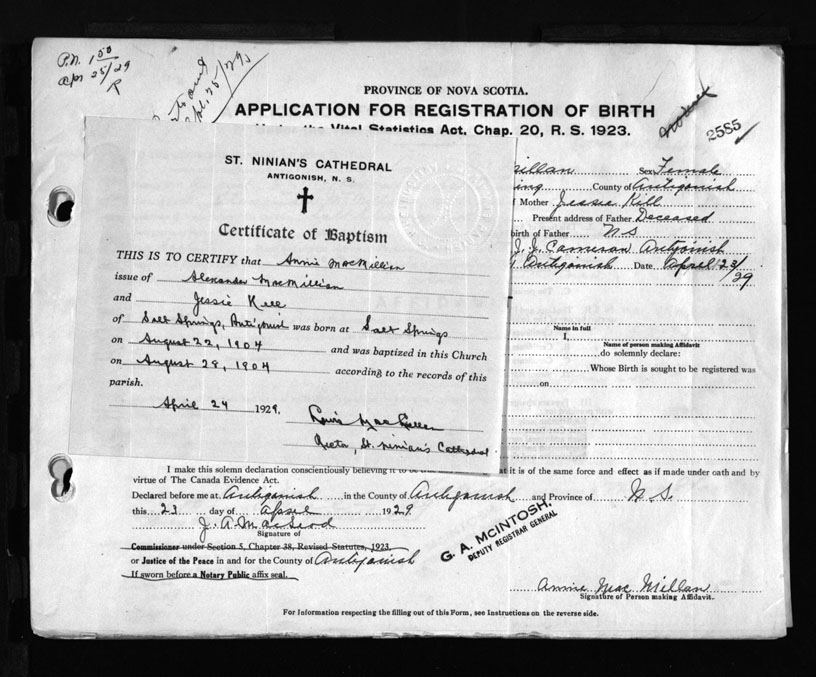 P.N. 1.50
Apr 25/29
R
PROVINCE OF NOVA SCOTIA.
APPLICATION FOR REGISTRATION OF BIRTH
Under the Vital Statistics Act, Chap. 20, R. S. 1923.
2585
ST. NINIAN'S CATHEDRAL
ANTIGONISH, N. S.
Certificate of Baptism
THIS IS TO CERTIFY that Annie MacMillan
issue of Alexander MacMillan
and Jessie Kell
of Salt Springs, Antigonish was born at Salt Springs
on August 22, 1904 and was baptized in this Church
on August 28, 1904 according to the records of this
parish.
April 24 1929.
Rector, St. Ninian's Cathedral
illan Sex Female
ing County of Antigonish
f Mother Jessie Kill
Present address of Father Deceased
birth of Father N S
J. J. Cameron Antigonish
Antigonish Date April 23/29
Name in full
I,
Name of person making Affidavit
do solemnly declare:
Whose Birth is sought to be registered was
on
I make this solemn declaration conscientiously believing it to be t it is of the same force and effect as if made under oath and by
virtue of The Canada Evidence Act.
Declared before me at Antigonish in the County of Antigonish and Province of N. S.
this 23 day of April 1929
J. A. MacLeod
Signature of
Commissioner under Section 5, Chapter 38, Revised Statutes, 1923.
or Justice of the Peace in and for the County of Antigonish
If sworn before a Notary Public affix seal.
G. A. McINTOSH,
DEPUTY REGISTRAR GENERAL
Annie MacMillan
Signature of Person making Affidavit.
For Information respecting the filling out of this Form, see Instructions on the reverse side.